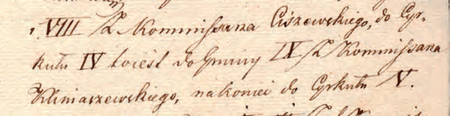 i VIII /Z. Kommissarza Ciszewskiego, do Cyr-
kułu IV toiest do Gminy IX /Z Kommissarza
Kliniaszewskiego, nakoniec do Cyrkułu V.